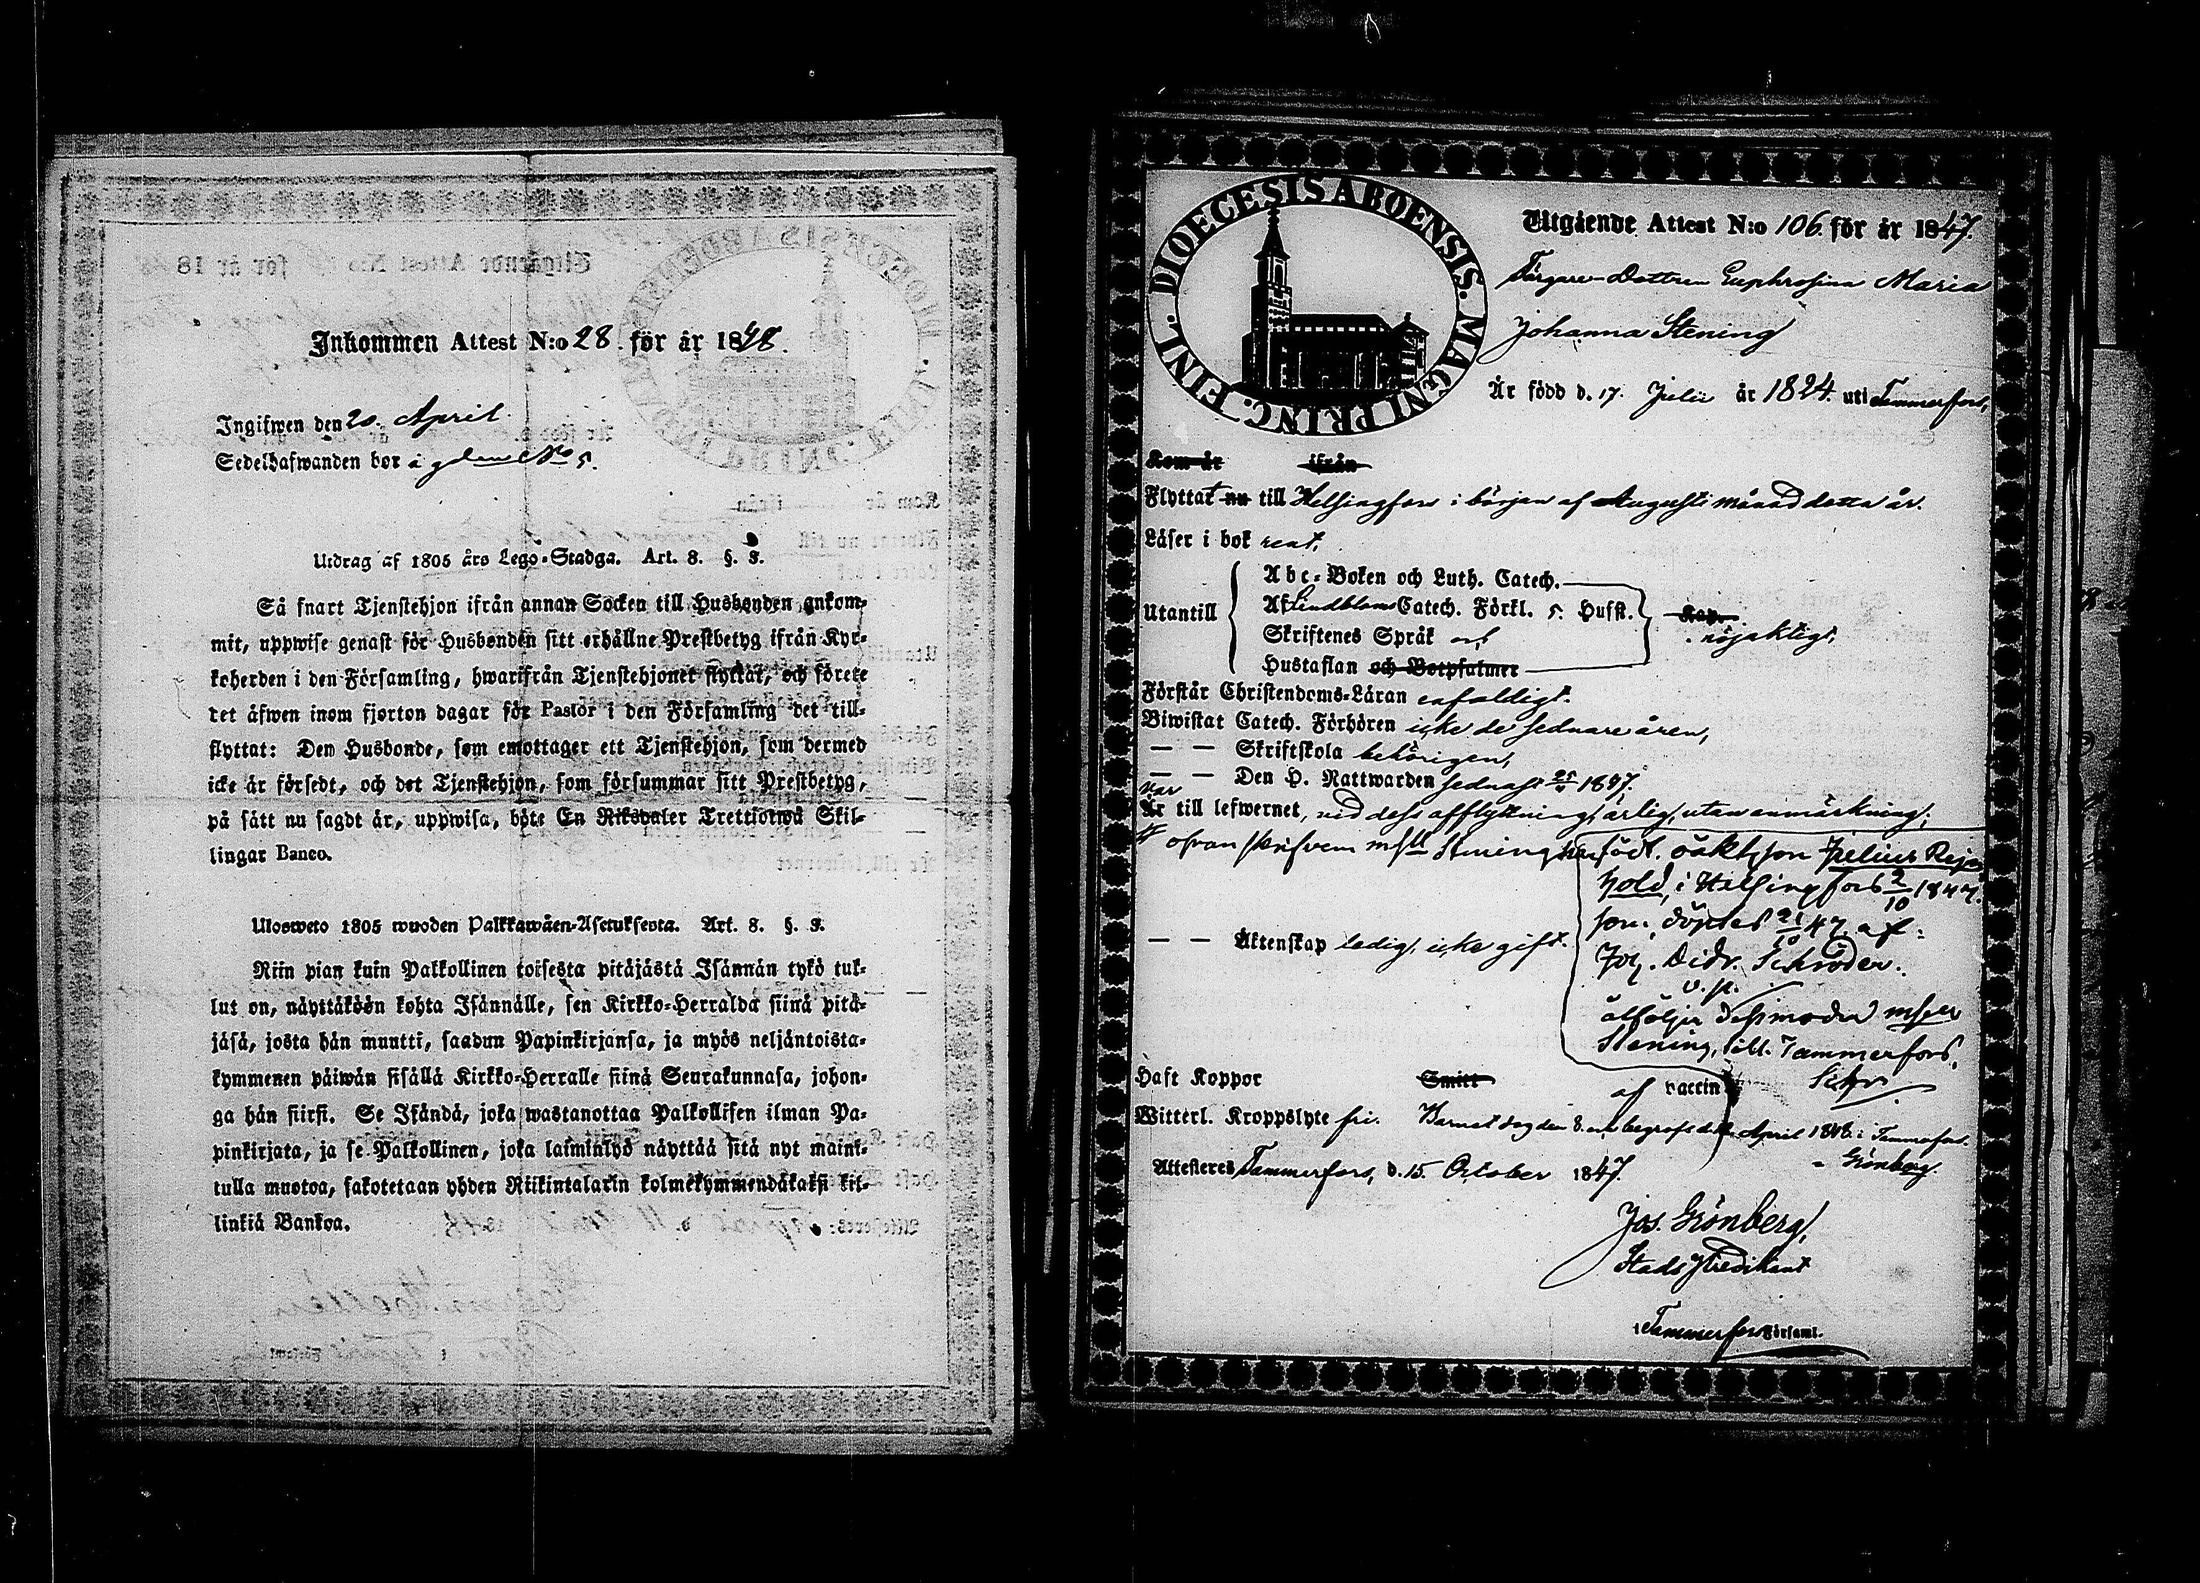 Inkommen Attest N:o 28. för år 1848.
Ingifwen den 20. April.
Sedelhafwanden bor i gden No 5.
Utdrag af 1805 års Lego-Stadga. Art. 8. §. 3.
Så snart Tjenstehjon ifrån annan Socken till Husbonden ankom-
mit, uppwise genast för Husbonden sitt erhållne Prestbetyg ifrån Kyr-
koherden i den Församling, hwarifrån Tjenstehjonet flyttat, och förete
det äfwen inom fjorton dagar för Pastor i den Församling det till-
flyttat: Den Husbonde, som emottager ett Tjenstehjon, som dermed
icke är försedt, och det Tjenstehjon, som försummar sitt Prestbetyg,
på sätt nu sagdt är, uppwisa, böte En Riksdaler Trettiotwå Skil-
lingar Banco.
Ulosweto 1805 wuoden Palkkawäen-Asetuksesta. Art. 8. §. 3.
Niin pian kuin Palkollinen toisesta pitäjästä Isännän tykö tul-
lut on, näyttäköön kohta Isännälle, sen Kirkko-Herralda siinä pitä-
jäsä, josta hän muutti, saadun Papinkirjansa, ja myös neljäntoista-
kymmenen päiwän sisällä Kirkko-Herralle siinä Seurakunnasa, johon-
ga hän siirsi. Se Isändä, joka wastanottaa Palkollisen ilman Pa-
pinkirjata, ja se Palkollinen, joka laiminlyö näyttää sitä nyt maini-
tulla muotoa, sakotetaan yhden Riikintalarin kolmekymmendäkaksi kil-
linkiä Bankoa.
DIOECESIS ABOENSIS. MAGNI PRINC. FINL.
Utgående Attest N:o 106. för år 1847.
Färgare-Dottren Euphrosina Maria
Johanna Stening
År född d. 17. Julii år 1824. uti Tammerfors,
Kom år ifrån
Flyttat nu till Helsingfors i början af Augusti månad detta år.
Läser i bok rent,
Utantill
Abc-Boken och Luth. Catech.
Af Lindbloms Catech. Förkl. 5. Hufst.
Skriftenes Språk och
Hustaflan och Botpsalmer
Kap.
nöjaktigt,
Förstår Christendoms-Läran enfaldigt.
Biwistat Catech. Förhören icke de sednare åren,
— — Skriftskola behörigen,
— — Den H. Nattwarden sednast 25 1847.
var
Är till lefwernet, vid dess afflyttning, ärlig, utan anmärkning;
ofvanskrifven mslle Stening har födt oäkt son Julius Rejn-
hold, i Helsingfors 2/10 1847.
som döptes 21/10 47 af
Joh. Didr. Schröder.
v. p.
åtföljer dess moder mslle
Stening, till Tammerfors.
Schr
— — Äktenskap ledig, icke gift.
Haft Koppor Smitt af vaccin
Witterl. Kroppslyte fri. Barnet dog den 8. och begrofs d. April 1848. i Tammerfors.
Grönberg.
Attesteres Tammerfors, d. 15. October 1847.
Jos. Grönberg,
Stads Predikant
i Tammerfors Församl.